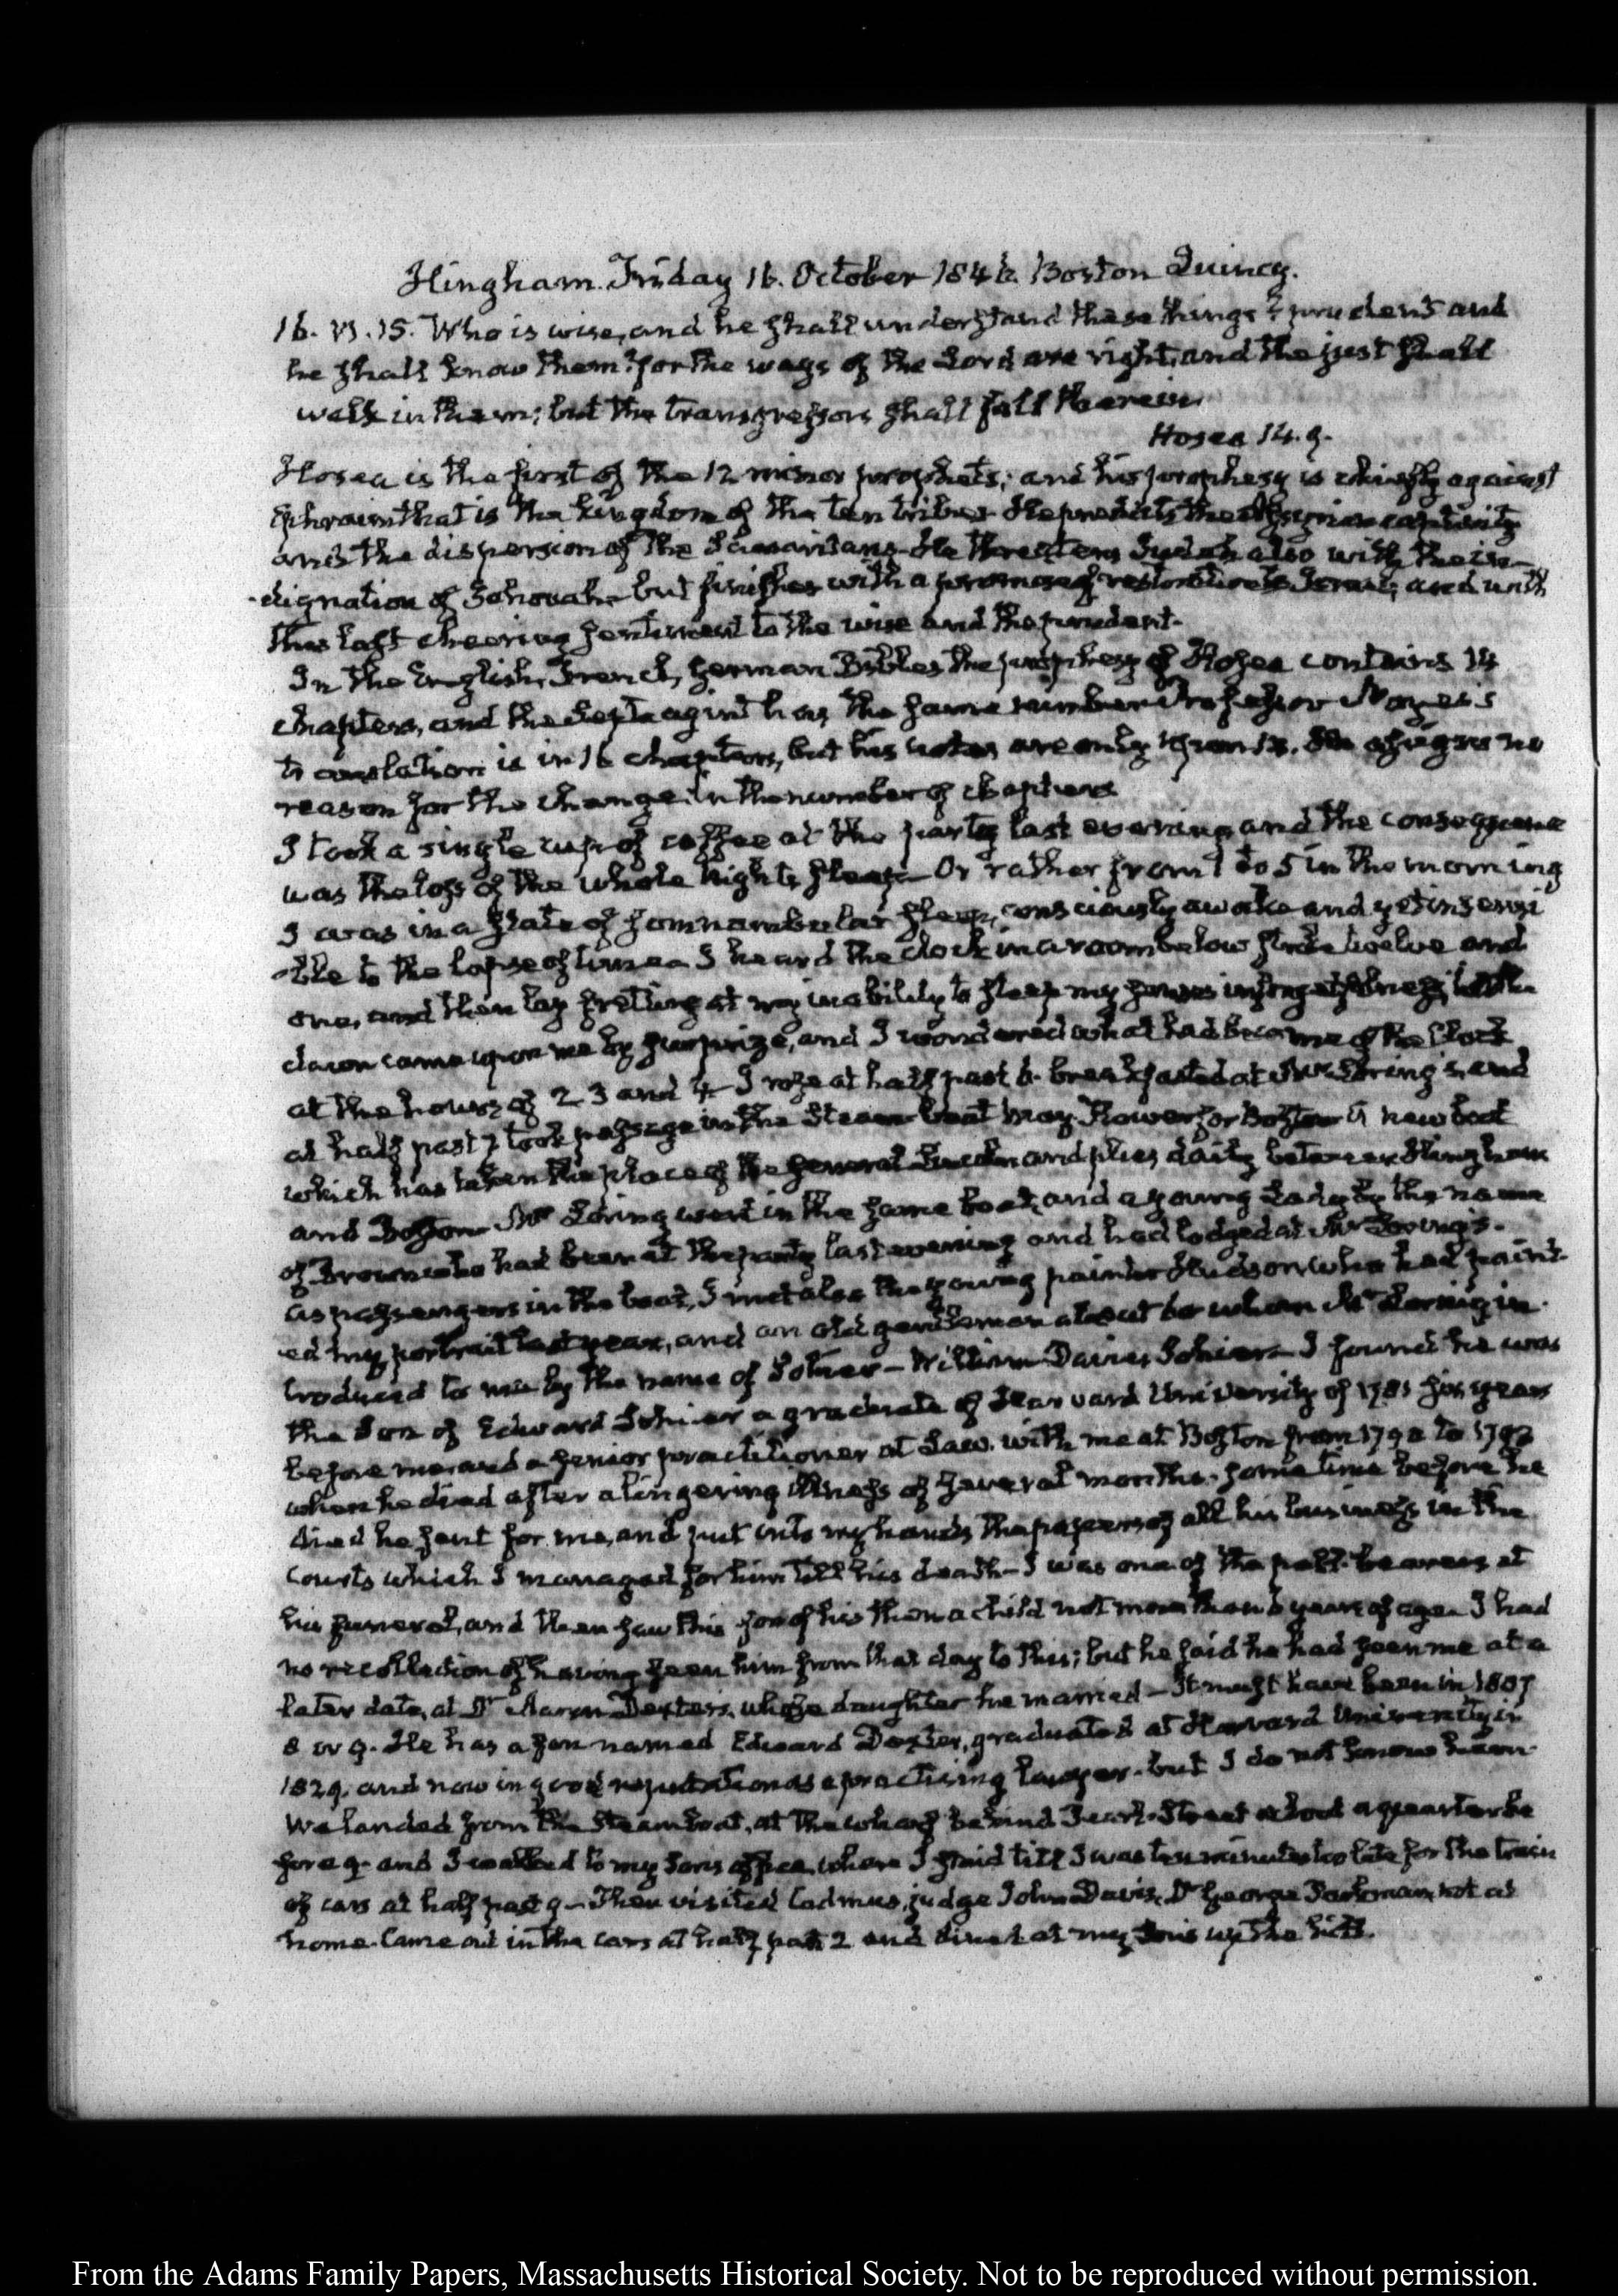 Hingham. Friday 16. October 1846. Boston Quincy.
16. VI.15. Who is wise, and he shall understand these things? prudent and
he shall know them? for the ways of the Lord are right, and the just shall
walk in them; but the transgressors shall fall therein.
Hosea 14.9.
Hosea is the first of the 12 minor prophets; and his prophesy is chiefly against
Ephraim that is the kingdom of the ten tribes. He predicts the Assyrian captivity
and the dispersion of the Samaritans. He threatens Judah also with the in-
-dignation of Jehovah but finishes with a promise of restoration to Israel; and with
this last cheering sentiment to the wise and the prudent.
In the English, French, German Bibles the prophesy of Hosea contains 14
chapters, and the Septuagint has the same number Professor Noyes's
translation is in 16 chapters, but his notes are only upon 14. He assigns no
reason for the change in the number of chapters
I took a single cup of coffee at the party last evening and the consequence
was the loss of the whole night's sleep. Or rather from 1 to 5 in the morning
I was in a state of somnambular sleep, consciously awake and yet insensi
-ble to the lapse of time. I heard the clock in a room below strike twelve and
one, and then lay fretting at my inability to sleep my senses in forgetfulness; till the
dawn came upon me by surprize, and I wondered what had become of the Clock
at the hours of 2 3 and 4. I rose at half past 6. breakfasted at Mr Loring's, and
at half past 7 took passage in the Steam boat May Flower for Boston a new boat
which has taken the place of the General Lincoln and plies daily between Hingham
and Boston. Mr Loring went in the same boat, and a young Lady by the name
of Brown who had been at the party last evening and had lodged at Mr Loring's.
as passengers in the boat, I met also the young painter Hudson who had paint-
-ed my portrait last year, and an old gentleman about 60 whom Mr Loring in-
troduced to me by the name of Sohier - William Davies Sohier. I found he was
the Son of Edward Sohier a graduate of Harvard University of 1781 six years
before me and a senior practitioner at Law. with me at Boston from 1790 to 1793
when he died after a lingering illness of several months. some time before he
died he sent for me, and put into my hands the papers of all his business in the
Courts which I managed for him till his death - I was one of the pall-bearers at
his funeral, and then saw this son of his then a child not more than 6 years of age. I had
no recollection of having seen him from that day to this; but he said he had seen me at a
later date, at Dr Aaron Dexter's, whose daughter he married - It must have been in 1807
8 or 9. He has a son named Edward Dexter, graduated at Harvard University in
1829. and now in good reputation as a practising lawyer. but I do not know him.
We landed from the Steamboat, at the wharf behind Pearl-Street about a quarter be
fore 9. and I walked to my Sons office, where I staid till I was ten minutes too late for the train
of cars at half past 9 - Then visited Cadmus, judge John Davis, Dr George Parkman, not at
home. Came out in the cars at half past 2 and dined at my Son's up the hill.
From the Adams Family Papers, Massachusetts Historical Society. Not to be reproduced without permission.